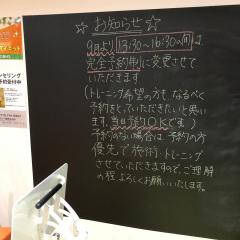 ☆お知らせ☆
9月より 13:30〜16:30の間は、
完全予約制に変更させて
いただきます
(トレーニング希望の方も、なるべく
予約をとっていただきたいと思い
ます。当日予約OKです)
予約のない場合は、予約の方
優先で施術・トレーニング
させていただきますので、ご理解
の程、よろしくお願いいたします。
ンセリング
予約受付中